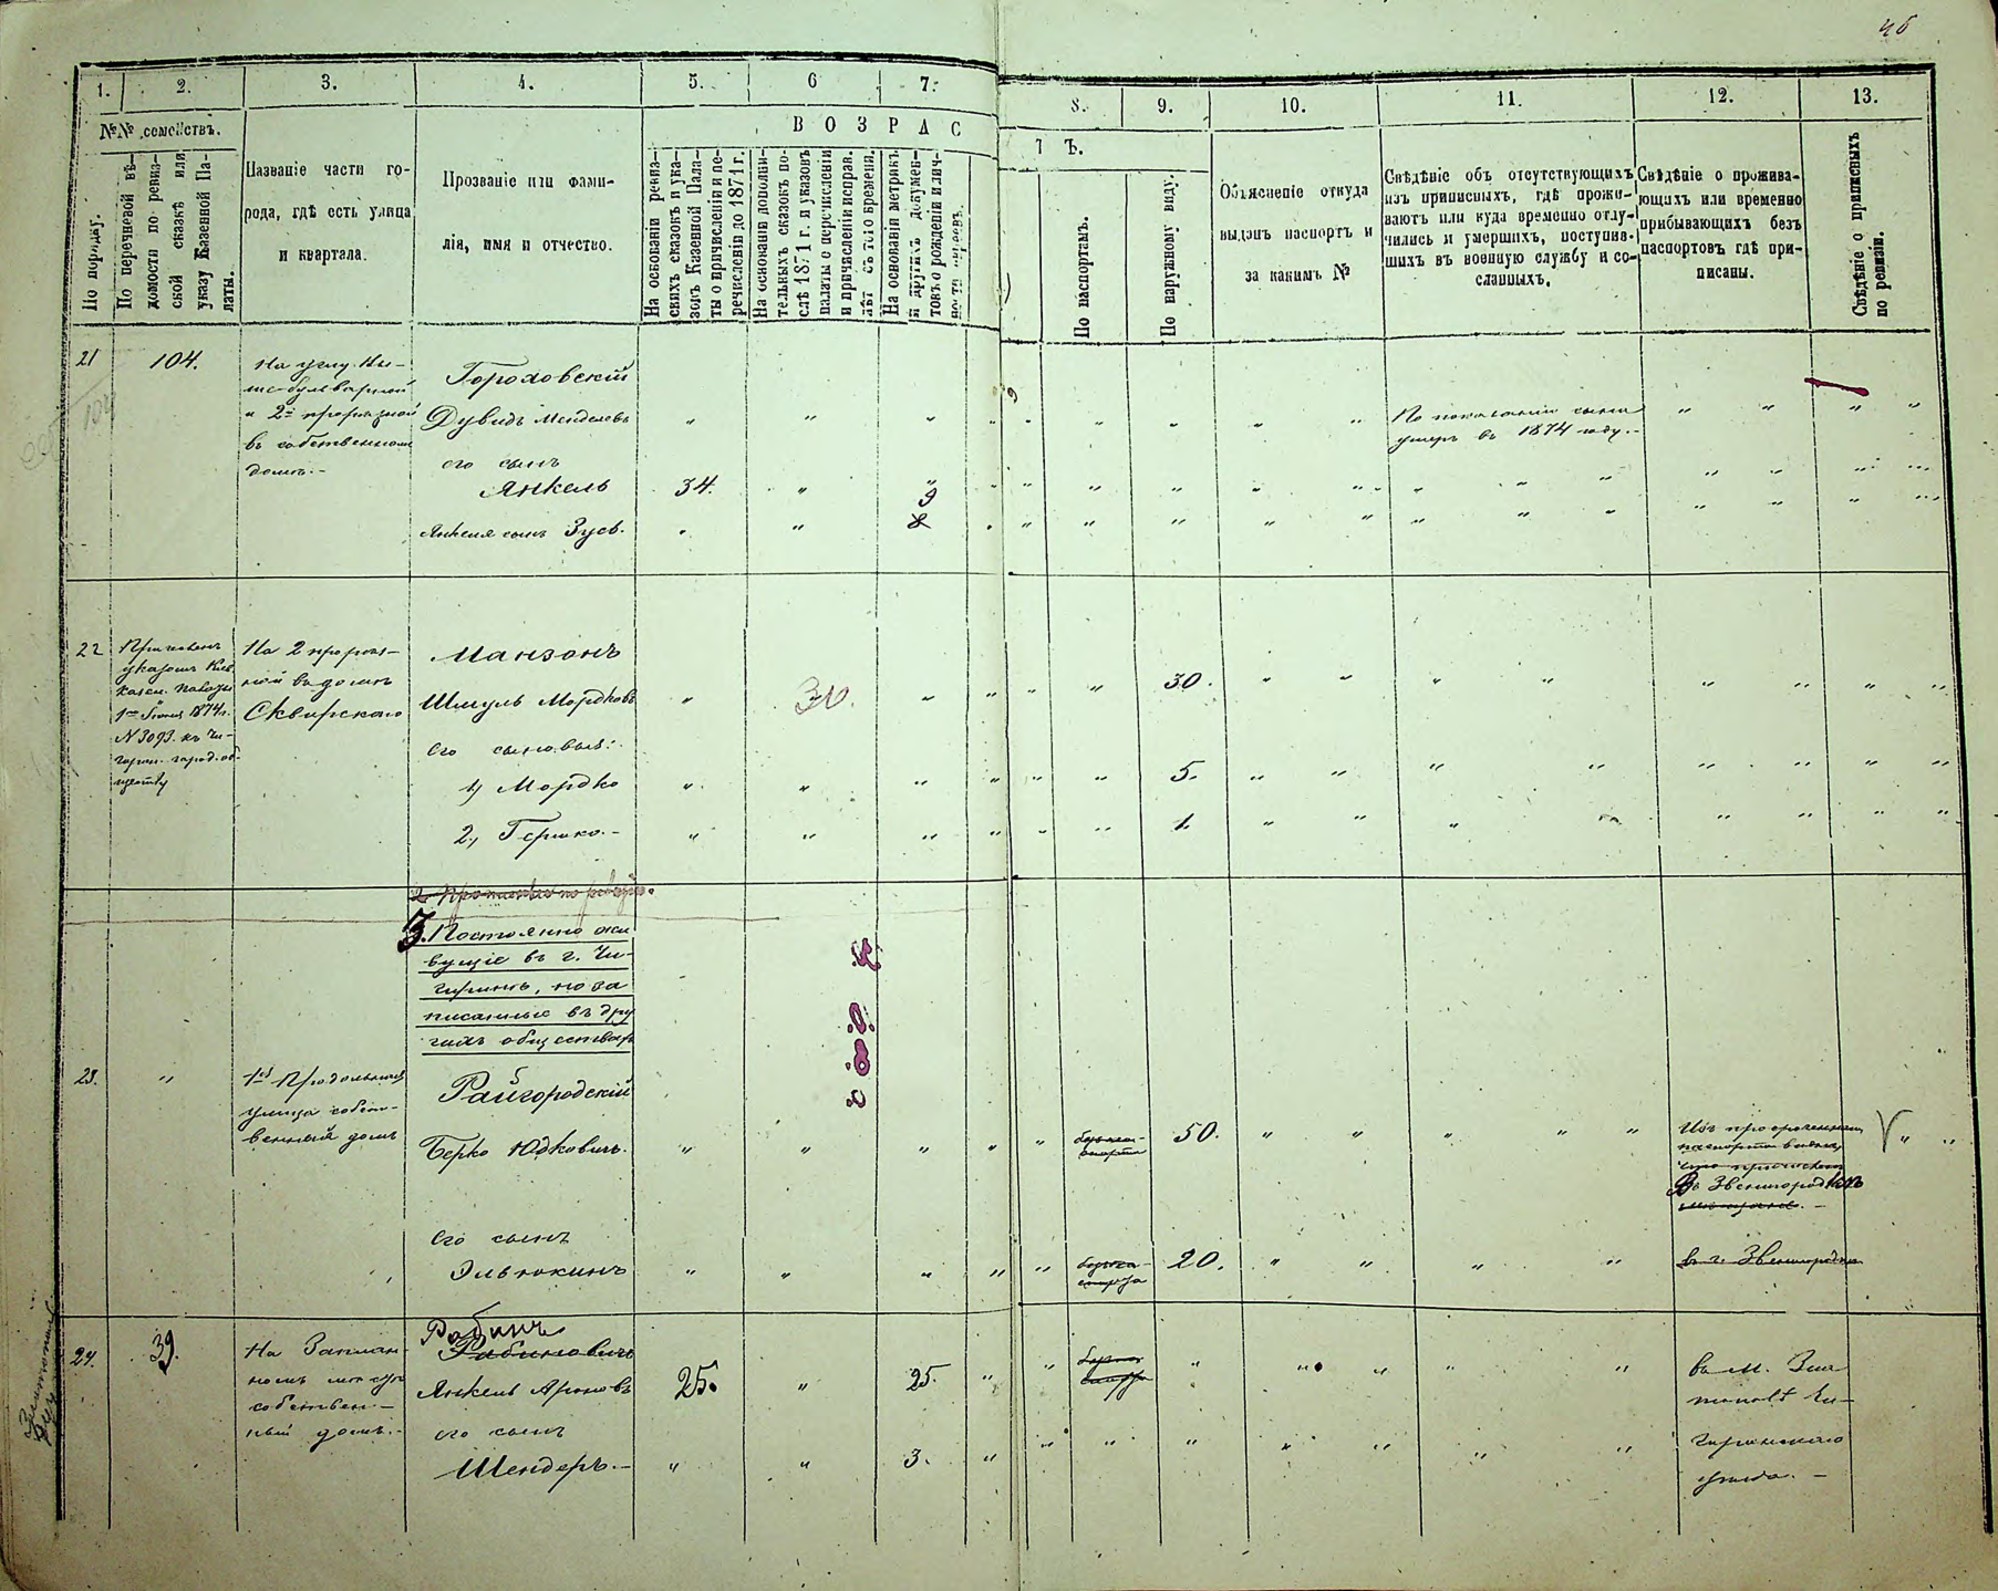 46
1. 2. 3. 4. 5. 6 7. 8. 9. 10. 11. 12. 13.
№№ семействъ.
В О З Р А С Т Ъ.
По порядку.
По перечневой вѣ-
домости по ревиз-
ской сказкѣ или
указу Казенной Па-
латы.
Названіе части го-
рода, гдѣ есть улица
и квартала.
Прозваніе или фами-
лія, имя и отчество.
На основаніи ревиз-
скихъ сказокъ и ука-
зовъ Казенной Пала-
ты о причисленіи и пе-
речисленіи до 1871 г.
На основаніи дополни-
тельныхъ сказокъ по-
слѣ 1871 г. и указовъ
палаты о перечисленіи
и причисленіи исправ.
лѣт съ того времени.
На основаніи метрикъ
и другихъ докумен-
товъ о рожденіи и лич-
ности евреевъ.
По паспортамъ.
По наружному виду.
Объясненіе откуда
выданъ паспортъ и
за какимъ №
Свѣдѣніе объ отсутствующихъ
изъ приписныхъ, гдѣ прожи-
ваютъ или куда временно отлу-
чились и умершихъ, поступив-
шихъ въ военную службу и со-
сланныхъ.
Свѣдѣніе о прожива-
ющихъ или временно
прибывающихъ безъ
паспортовъ гдѣ при-
писаны.
Свѣдѣніе о приписныхъ
по ревизіи.
21
104.
104
На углу Ни-
же-бульварной
и 2й проѣзной
въ собственномъ
домѣ.-
Гороховскій
Дувидъ Менделевъ
По показанію сына
умеръ въ 1874 году.-
его сынъ
Янкель 34.
Янкеля сынъ Зусь. 9
8
22
Причисленъ
указомъ Кіев.
казен. палаты
1го Іюня 1874г.
N 3093. къ Чи-
гирин. город. об-
ществу
На 2 проѣз-
ной въ домѣ
Сквирскаго
Манзонъ
Шмуль Мордковъ 30. 30.
Его сыновья:
1) Мордко 5.
2, Гершко.- 1.
3. Постоянно жи
вущіе въ г. Чи-
гиринѣ, но за
писанные въ дру
гихъ обществахъ
23.
1я Продольная
улица собст-
венный домъ
Райгородскій
Берко Юдковичъ. 50.
Изъ просроченнаго
паспорта видно,
что приписанъ
Въ Звенигородкѣ
Его сынъ
Эльюкимъ 20.
въ г. Звенигородкѣ
24.
39.
На Заплан-
собствен.-
ный домъ.-
Рабинъ
Рабиновичъ
Янкель Ароновъ 25. 25.
его сынъ
Шендеръ.- 3.
въ м. Злат
тополѣ Чи-
гиринскаго
уѣзда. -